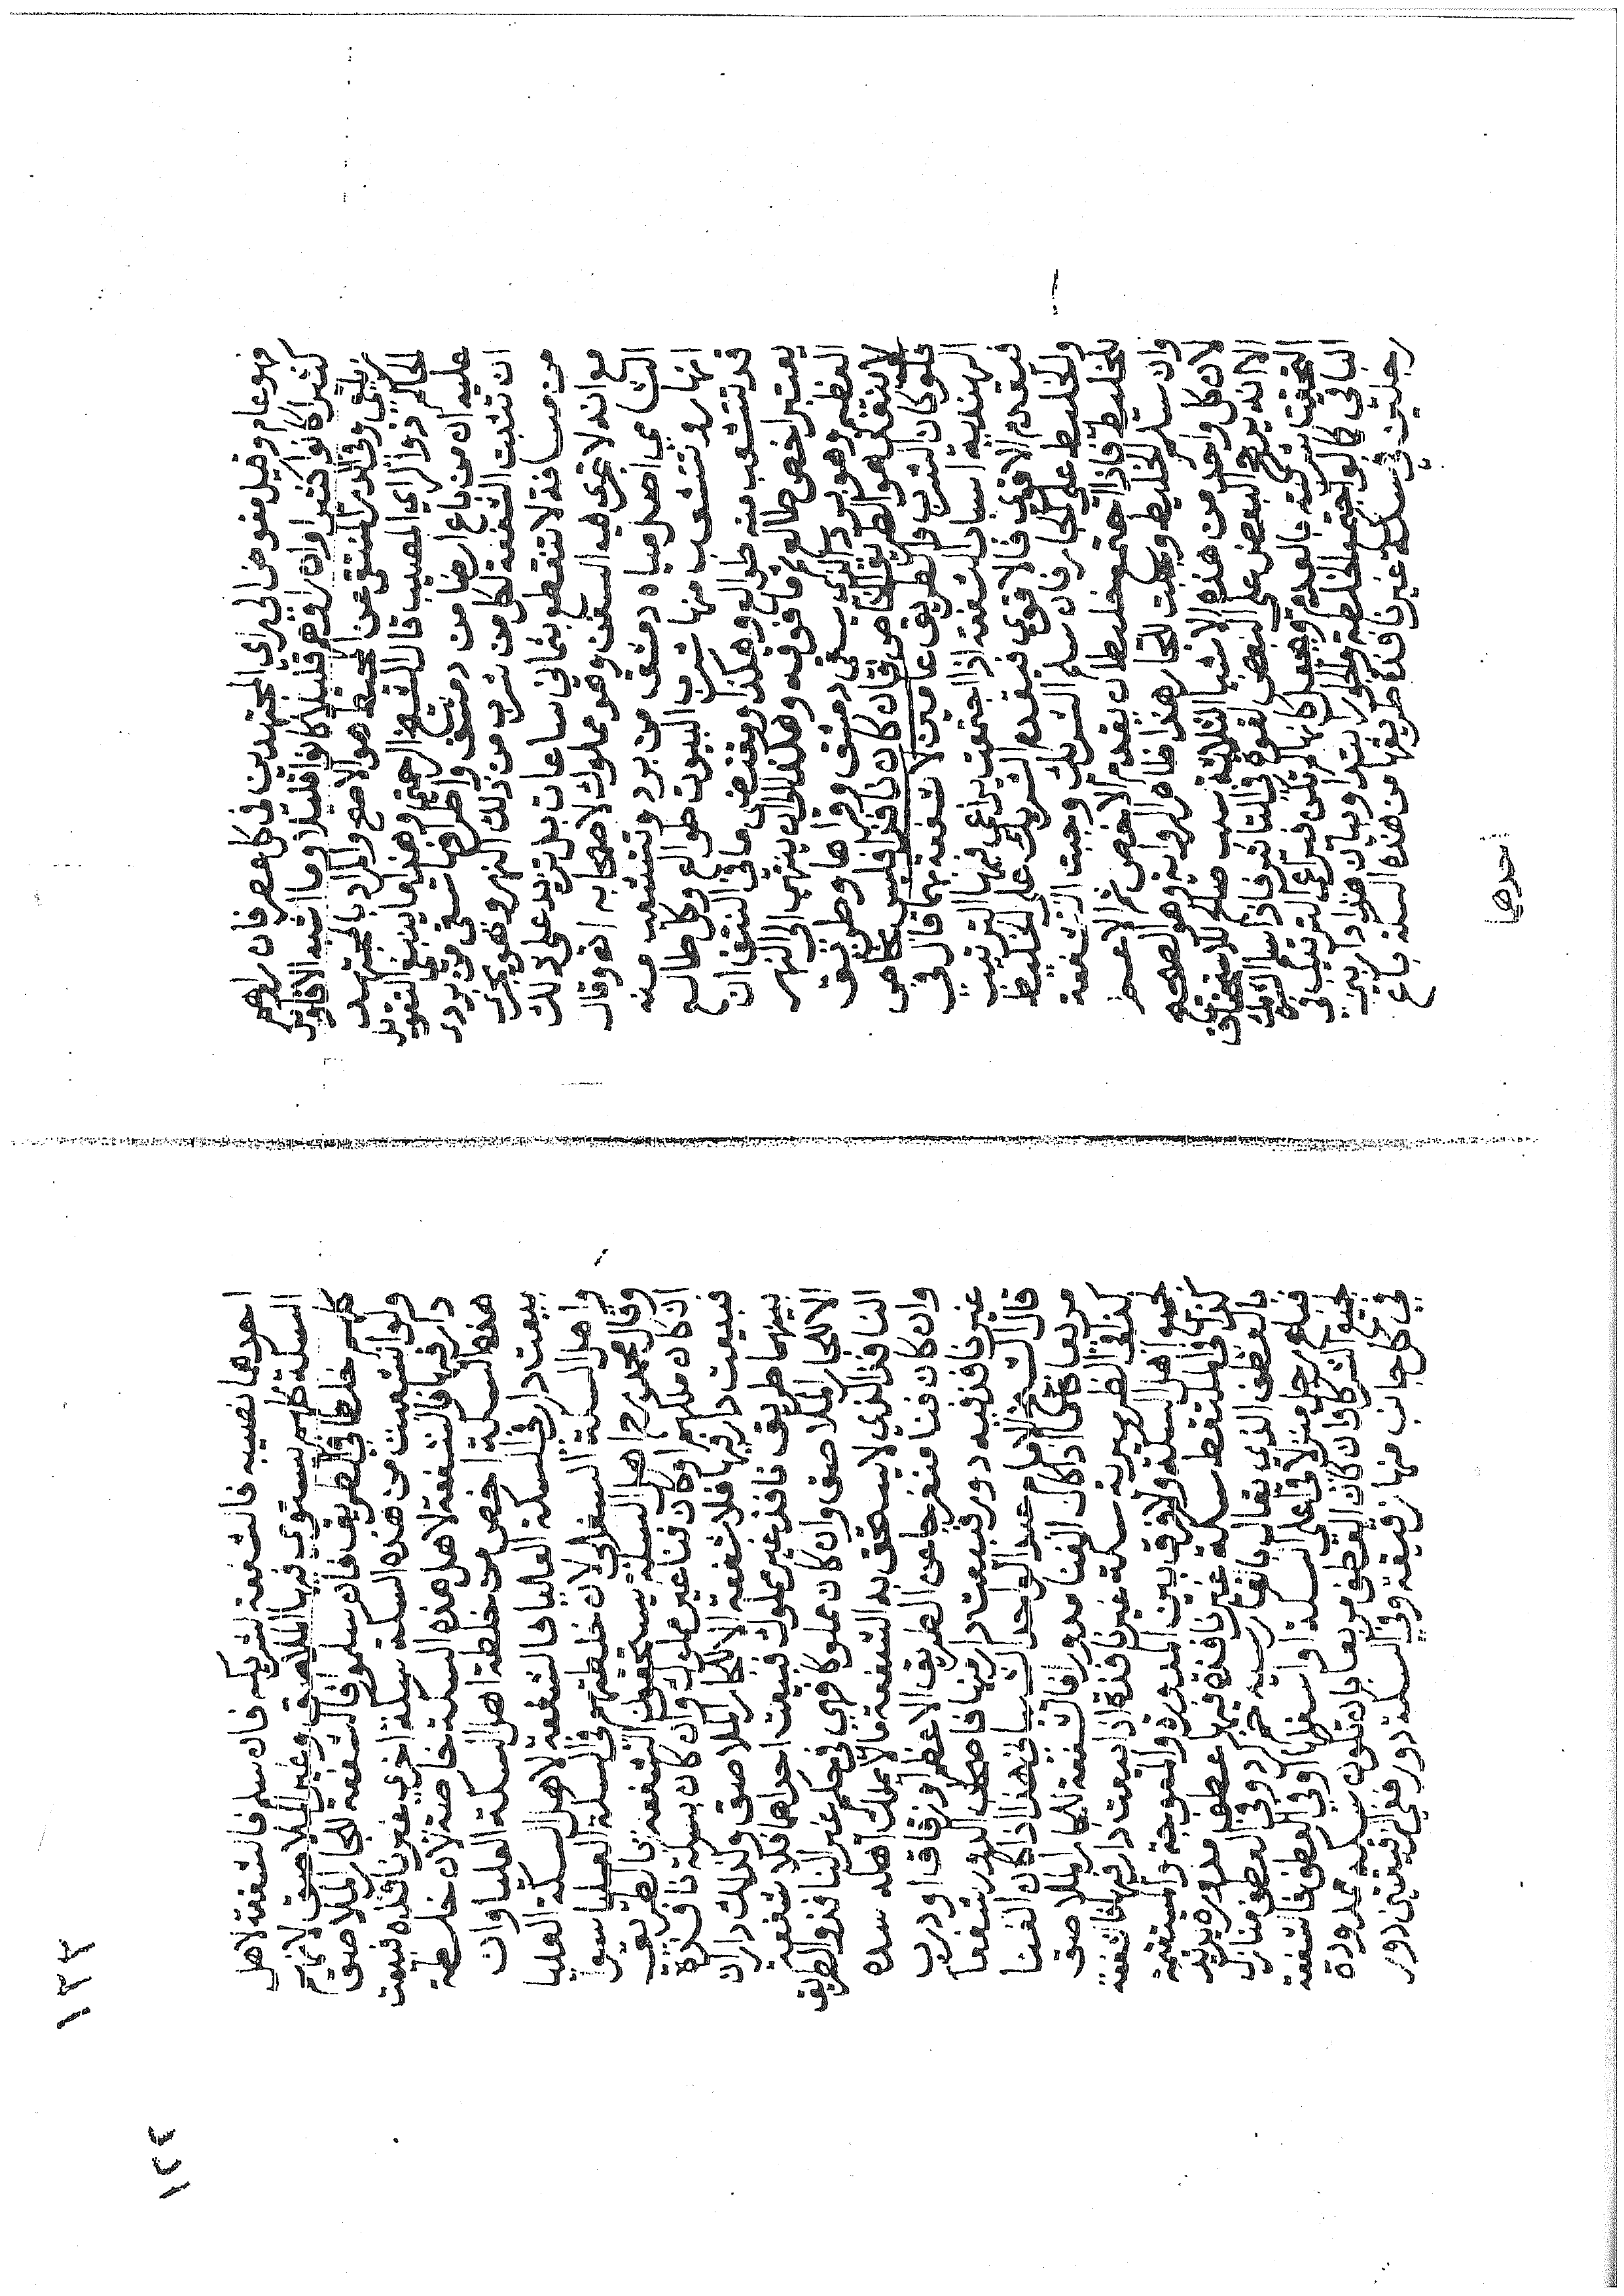 فهو عام وقيل مفوض الى راي المجتهدين في كل عصر فان راهم
كثيرا كانوا كثيرا وان راهم قليلا كانوا قليلا وما اشبه الاقاويل
وفي الدر المنتقى عن المحيط هو الاصح والمراد بالمجتهد
الحاكم ذو الراي المصيب قال الشيخ الرحمتي وهذا ما ينبغي التعويل
عليه ان من باع ارضا من دمشق واطرافها تسقى من بردى
ان تثبت الشفعة لكل من شرب من ذلك النهر وهو يجري
من مسافة لا تنقطع بثماني ساعات بل تزيد على ذلك
مع انه لا تجري فيه السفن وهو مملوك لاصحابه اه وقال
الشامي اصل مياه دمشق من بردى وتتشعب منه
انهار وتتشعب منها شرب البيوت طوالع وكل طالع
قد تتشعب منه طوالع وهكذا ومقتضى ما في النتف ان
يعتبر اخص طالع ثم ما فوقه وهكذا الى ان ينتهي الى النهر
العظيم وهو بردى الذي يسقي دمشق وقراها وطريق
لا ينفذ هو الطريق الخاص فان كان نافذا فليس بخاص
فلو كان الشرب والطريق عامين لا شفعة بهما قال في
الهندية اسباب الشفعة اذا اجتمعت يراعى فيها الترتيب
فيقدم الاقوى فالاقوى فيقدم الشريك على الخليط
والخليط على الجار فان سلم الشريك وجبت الشفعة
للخليط فاذا اجتمع خليطان يقدم الاخص ثم الاعم
وان سلم الخليط وجبت للجار هذا ظاهر الرواية وهو الصحيح
لان كل واحد من هذه الاشيا الثلاثة سبب صالح للاستحقاق
الا انه يرجح البعض على البعض لقوة في التاثير فاذا سلم الشريك
التحقت شركته بالعدم وجعل كانها لم تكن فيراعى الترتيب في
الباقي كما لو اجتمع الخلطة والجوار ابتدا وبيان هذا دار بين
رجلين في سكة غير نافذة طريقها من هذه السكة باع
احدهما
احدهما نصيبه فالشفعة لشريكه فان سلم فالشفعة لاهل
السكة كلهم يستوي فيها الملاصق وغير الملاصق لانهم
كلهم خلطا في الطريق فان سلموا فالشفعة للجار الملاصق
ولو انشعبت من هذه السكة سكة اخرى غير نافذة فبيعت
دار فيها فالشفعة لاهل هذه السكة خاصة لان خلطة
هذه السكة اخص من خلطة اهل السكة العليا وان
بيعت دار في السكة العليا فالشفعة لاهل السكة العليا
واهل السكة السفلى لان خلطتهم في السكة العليا سوا
وقال محمد رح اهل السكة يستحقون الشفعة بالطريق
ان كان ملكهم او كان فنا غير مملوك وان كان سكة نافذة
فبيعت دار فيها فلا شفعة الا للجار الملاصق وكذلك داران
بينهما طريق نافذ غير مملوك فبيعت احداهما فلا شفعة
الا للجار الملاصق وان كان مملوكا فهي في حكم غير النافذ والطريق
النافذ الذي لا يستحق به الشفعة ما لا يملك اهله سده
وان كان فنا منفرجا عن الطريق الاعظم او زقاقا او درب
غير نافذ فيه دور فبيعت دار منها فاصحاب الدور شفعا
قال الشيخ الامام عبد الواحد الشيباني هذا اذا كان الفنا
مربعا فاما اذا كان الفنا مدورا فالشفعة للجار الملاصق
كذا في الظهيرية سكة غير نافذة اذا بيعت دار فيها فالشفعة
لجميع اهل السكة ولا فرق بين المدورة والمعوجة والمستقيمة
كذا في الملتقط سكة غير نافذة فيها عطف مدور يريد
بالعطف الذي يقال بالفارسية خم كرد وفي العطف منازل
فباع رجل منزلا في اعلى السكة او اسفلها او في العطف فالشفعة
لجميع الشركا وان كان العطف مربعا بان تكون سكة ممدودة
في كل جانب منها زقيقة وفي السكة دور وفي الزقيقتين دور
١٢٣
١٢٤